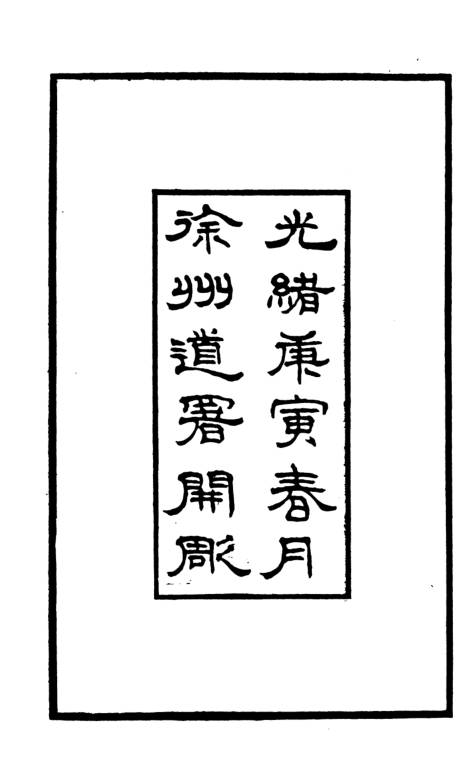 光緒庚寅春月
徐州道署開彫